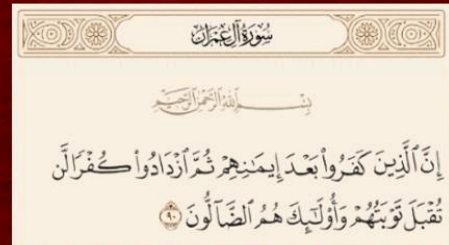 سُورَةُ آلِ عِمْرَان
بِسْمِ ٱللَّهِ ٱلرَّحْمَٰنِ ٱلرَّحِيمِ
إِنَّ ٱلَّذِينَ كَفَرُوا۟ بَعْدَ إِيمَٰنِهِمْ ثُمَّ ٱزْدَادُوا۟ كُفْرًا لَّن
تُقْبَلَ تَوْبَتُهُمْ وَأُو۟لَٰٓئِكَ هُمُ ٱلضَّآلُّونَ ٩٠